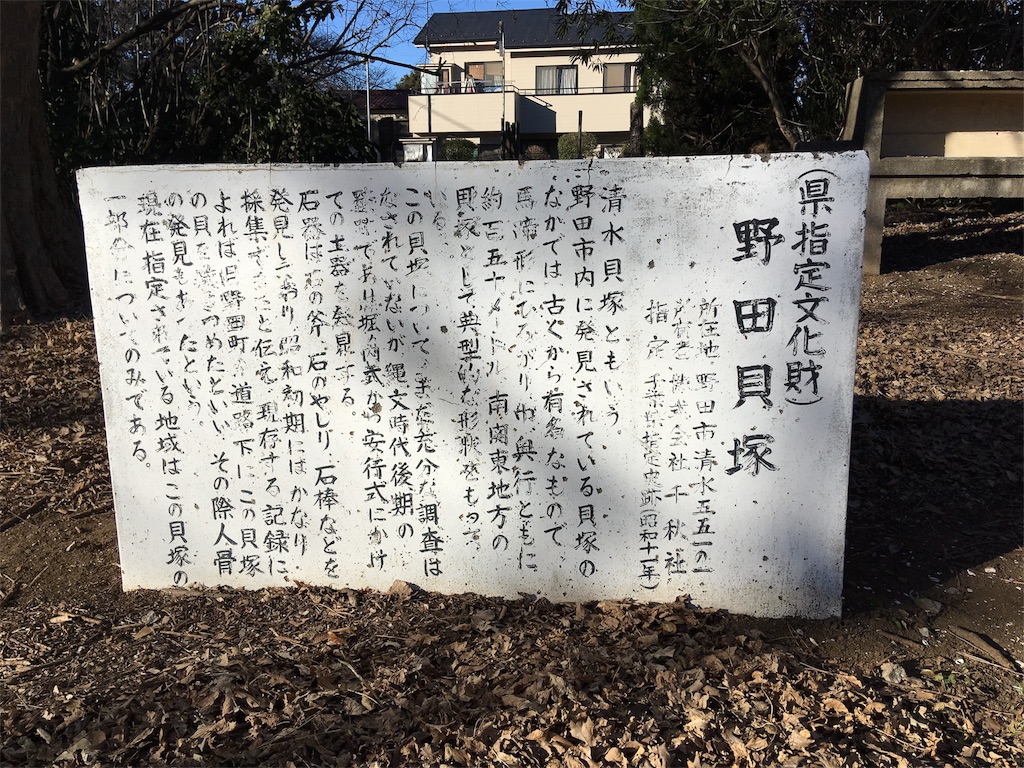 (県指定文化財)
野田貝塚
所在地 野田市清水五五一の一
所有者 株式会社千秋社
指定 千葉県指定史跡(昭和十一年)
清水貝塚ともいう。
野田市内に発見されている貝塚の
なかでは古くから有名なもので
馬蹄形にひろがり 巾、奥行ともに
約百五十メートル 南関東地方の
貝塚として典型的な形状をもって
いる。
この貝塚について、まだ充分な調査は
なされていないが、縄文時代後期の
貝塚であり堀ノ内式から安行式にかけ
ての土器を発見する。
石器は石の斧、石のやじり、石棒などを
発見しており 昭和初期にはかなり
採集できたと伝え 現存する記録に
よれば旧野田町の道路下にこの貝塚
の貝を敷きつめたといい その際人骨
の発見もあったという。
現在指定されている地域はこの貝塚の
一部分についてのみである。